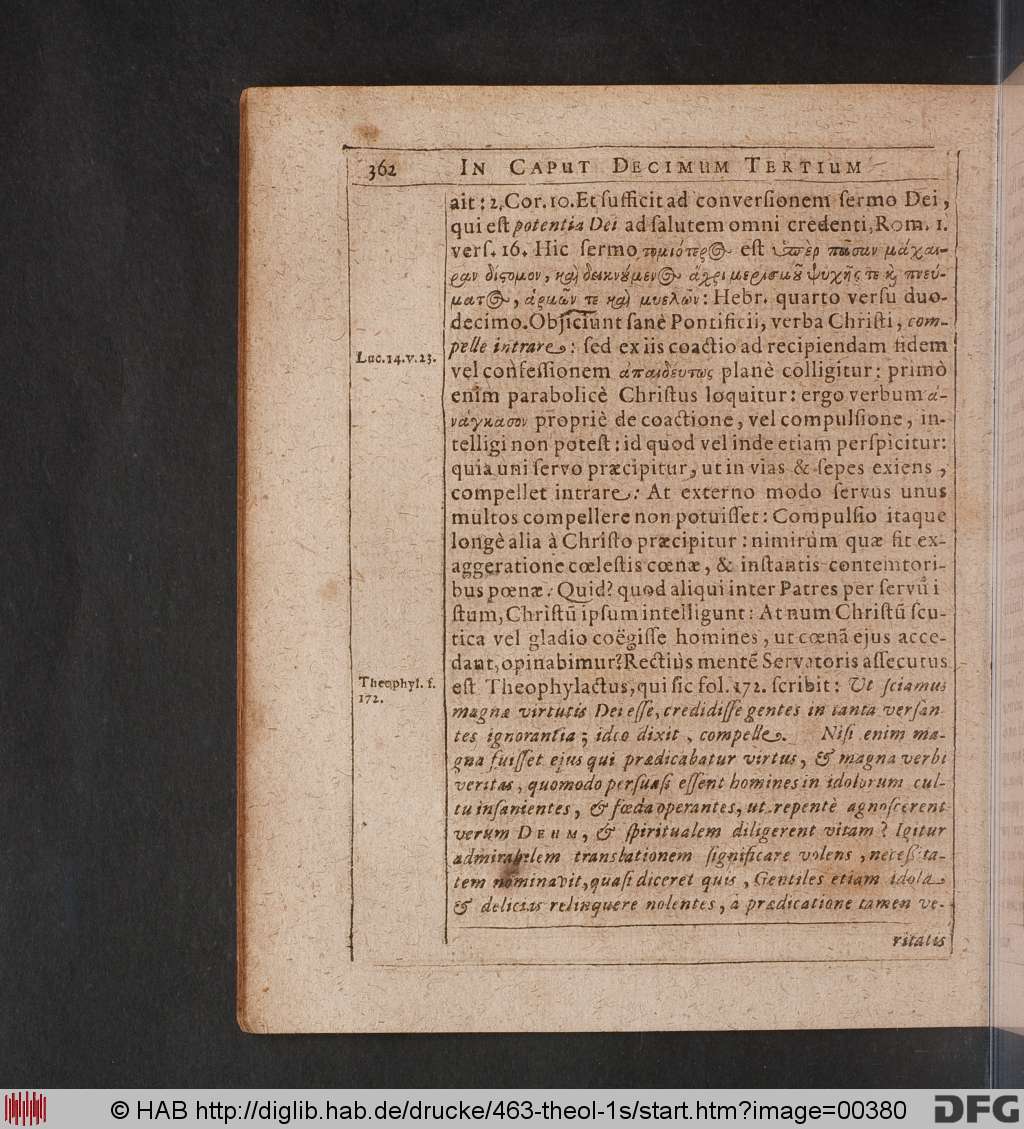 362 IN CAPUT DECIMUM TERTIUM
ait: 2. Cor. 10. Et ſufficit ad converſionem ſermo Dei,
qui eſt potentia Dei ad ſalutem omni credenti, Rom. 1.
verſ. 16. Hic ſermo τομιότερ@ est ὑπὲρ πᾶσαν μάχαι-
ραν δίςομον, καὶ δεικνούμεν@ ἄχρι μερισμοῦ ψυχῆς τε κ̀ πνεύ-
ματ@, ἁρμῶν τε καὶ μυελῶν: Hebr. quarto verſu duo-
decimo. Objiciunt ſanè Pontificii, verba Chriſti, com-
Luc. 14. v. 23.
pelle intrare: ſed ex iis coactio ad recipiendam fidem
vel confeſſionem ἀπαιδεύτως planè colligitur: primò
enim parabolicè Chriſtus loquitur: ergo verbum ἀ-
νάγκασον propriè de coactione, vel compulſione, in-
telligi non poteſt: id quod vel inde etiam perſpicitur:
quia uni ſervo præcipitur, ut in vias & ſepes exiens,
compellet intrare: At externo modo ſervus unus
multos compellere non potuiſſet: Compulſio itaque
longè alia à Chriſto præcipitur: nimirùm quæ fit ex-
aggeratione cœleſtis cœnæ, & inſtantis contemtori-
bus pœnæ. Quid? quod aliqui inter Patres per ſervũ i
ſtum, Chriſtũ ipſum intelligunt: At num Chriſtũ ſcu-
tica vel gladio coëgiſſe homines, ut cœnã ejus acce-
dant, opinabimur? Rectiùs mentẽ Servatoris aſſecutus
Theophyl. f.
172.
eſt Theophylactus, qui ſic fol. 172. ſcribit: Ut ſciamus
magnæ virtutis Dei eſſe, credidiſſe gentes in tanta verſan
tes ignorantia; ideo dixit, compelle. Niſi enim ma-
gna fuiſſet ejus qui prædicabatur virtus, & magna verbi
veritas, quomodo perſuaſi eſſent homines in idolorum cul-
tu inſanientes, & fœda operantes, ut repentè agnoſcerent
verum DEUM, & ſpiritualem diligerent vitam? Igitur
admirabilem translationem ſignificare volens, neceſſita-
tem nominavit, quaſi diceret quis, Gentiles etiam idola
& delicias relinquere nolentes, à prædicatione tamen ve-
ritatis
© HAB http://diglib.hab.de/drucke/463-theol-1s/start.htm?image=00380
DFG